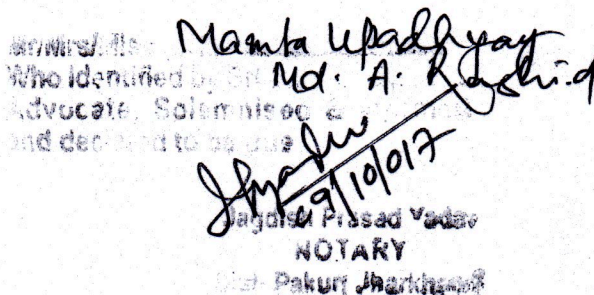 Sri/Mrs/Miss Mamta Upadhyay
Who Identified by Sri Md. A. Rashid
Advocate, Solemnised &
and declared to be true
09/10/017
Jagdish Prasad Yadav
NOTARY
Dist- Pakur, Jharkhand